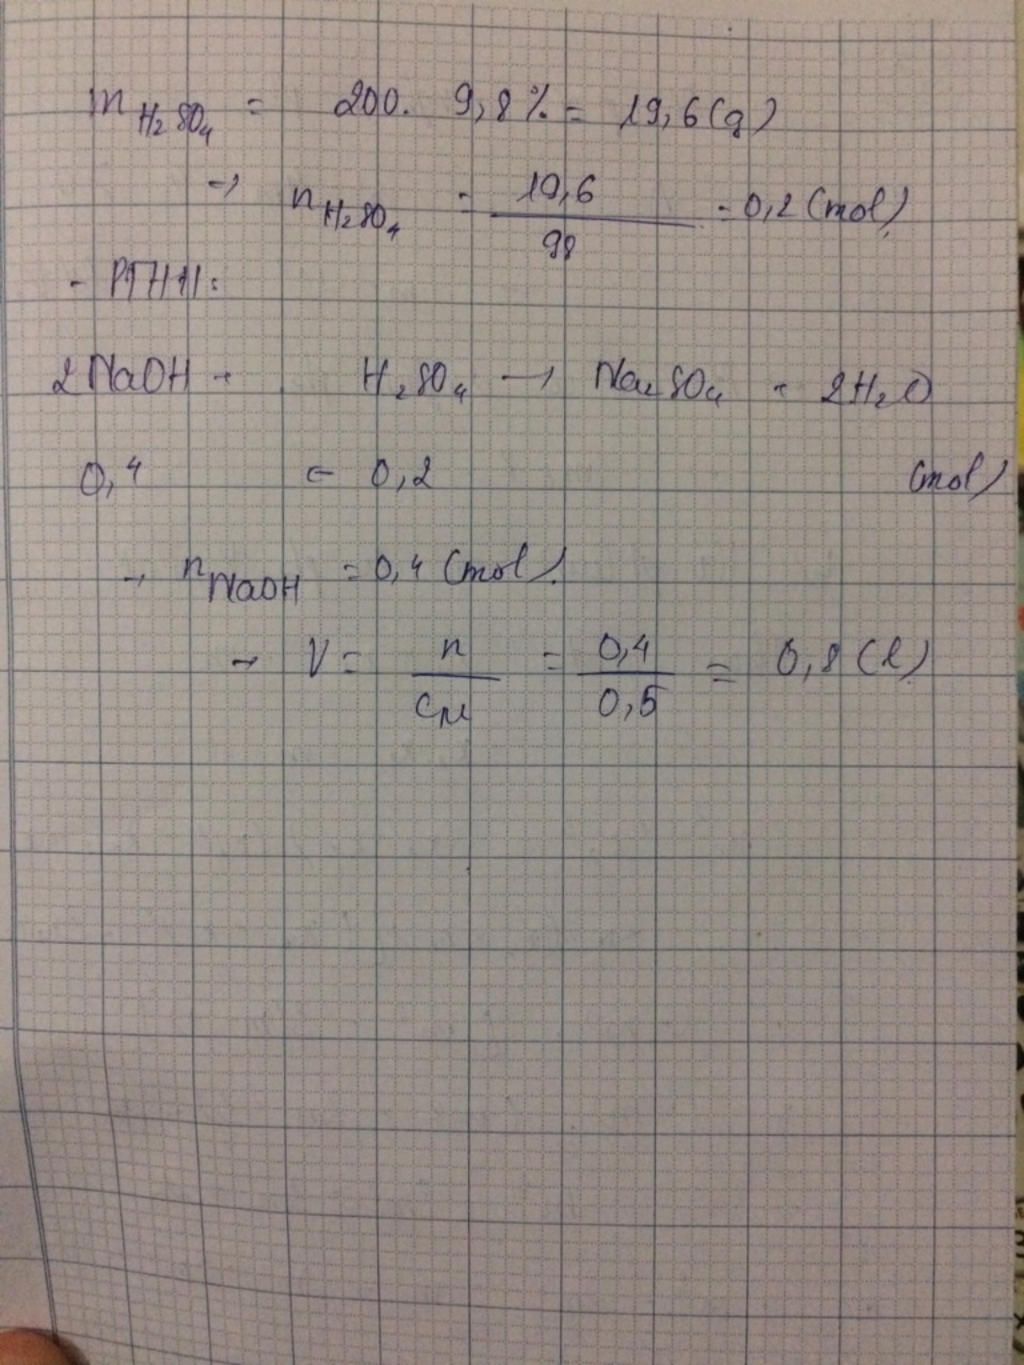 m H₂SO₄ = 200. 9,8% = 19,6(g)
→ n H₂SO₄ = 19,6 / 98 = 0,2 (mol)
- PTHH:
2NaOH + H₂SO₄ → Na₂SO₄ + 2H₂O
0,4 ← 0,2 (mol)
→ n NaOH = 0,4 (mol).
→ V = n / CM = 0,4 / 0,5 = 0,8 (l)